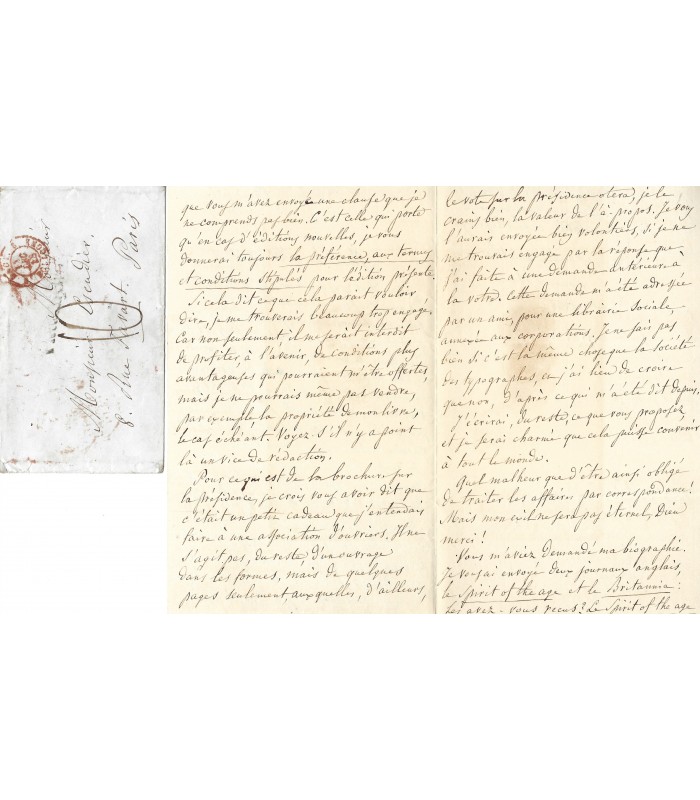 Monsieur
8. Rue Favart. Paris
10
que vous m'avez envoyé une clause que je
ne comprends pas bien. C'est celle qui porte
qu'en cas d'éditions nouvelles, je vous
donnerai toujours la préférence, aux termes
et conditions stipulés pour l'édition présente.
Si cela dit ce que cela parait vouloir
dire, je me trouverais beaucoup trop engagé,
Car non seulement, il me serait interdit
de profiter à l'avenir, de conditions plus
avantageuses qui pourraient m'être offertes,
mais je ne pourrais même pas vendre,
par exemple la propriété de mon livre,
le cas échéant. Voyez s'il n'y a point
là un vice de rédaction.
Pour ce qui est de la brochure sur
la présidence, je crois vous avoir dit que
c'était un petit cadeau que j'entendais
faire à une association d'ouvriers. Il ne
s'agit pas, du reste d'un ouvrage
dans les formes, mais de quelques
pages seulement auxquelles, d'ailleurs,
le vote sur la présidence otera, je le
crains bien, la valeur de l'à-propos. Je vous
l'aurais envoyée bien volontiers, si je ne
me trouvais engagé par la réponse que
j'ai faite à une demande antérieure à
la votre. Cette demande m'a été adressée
par un ami, pour une librairie sociale,
annexée aux corporations. Je ne sais pas
bien si c'est la même chose que la société
des typographes et j'ai lieu de croire
que non, d'après ce qui m'a été dit depuis.
J'écrirai, du reste, ce que vous proposez,
et je serai charmé que cela puisse convenir
à tout le monde.
Quel malheur que d'être ainsi obligé
de traiter les affaires par correspondance!
Mais mon exil ne sera pas éternel, Dieu
merci!
Vous m'aviez demandé ma biographie.
Je vous ai envoyé deux journaux anglais,
le Spirit of the age et le Britannia:
les avez-vous reçus? Le Spirit of the age